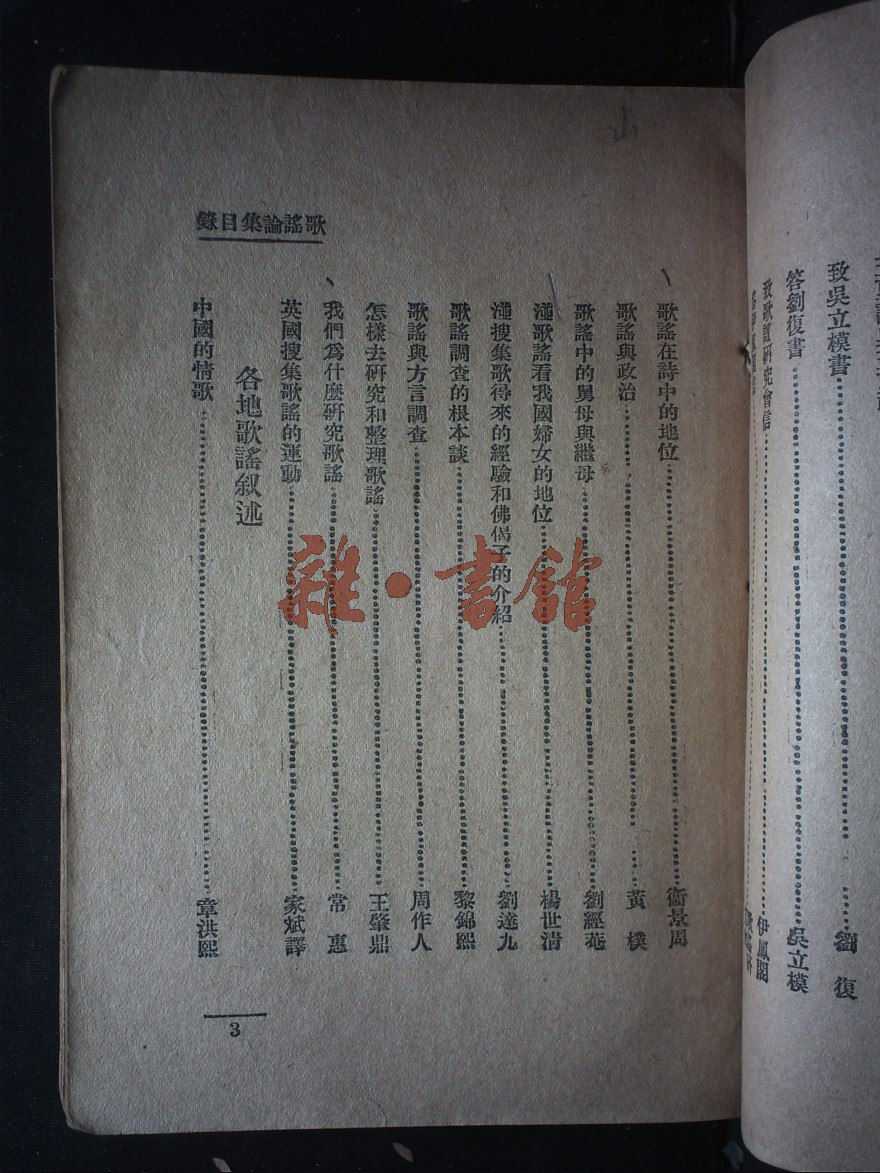 致吳立模書……劉復
答劉復書……吳立模
致歌謠研究會信……伊鳳閣
歌謠論集目錄
歌謠在詩中的地位……衞景周
歌謠與政治……黃樸
歌謠中的舅母與繼母……劉經菴
從歌謠看我國婦女的地位……楊世清
從搜集歌得來的經驗和佛偈子的介紹……劉達九
歌謠調查的根本談……黎錦熙
歌謠與方言調查……周作人
怎樣去研究和整理歌謠……王肇鼎
我們爲什麼研究歌謠……常惠
英國搜集歌謠的運動……家斌譯
各地歌謠叙述
中國的情歌……章洪熙
3
雜·書館